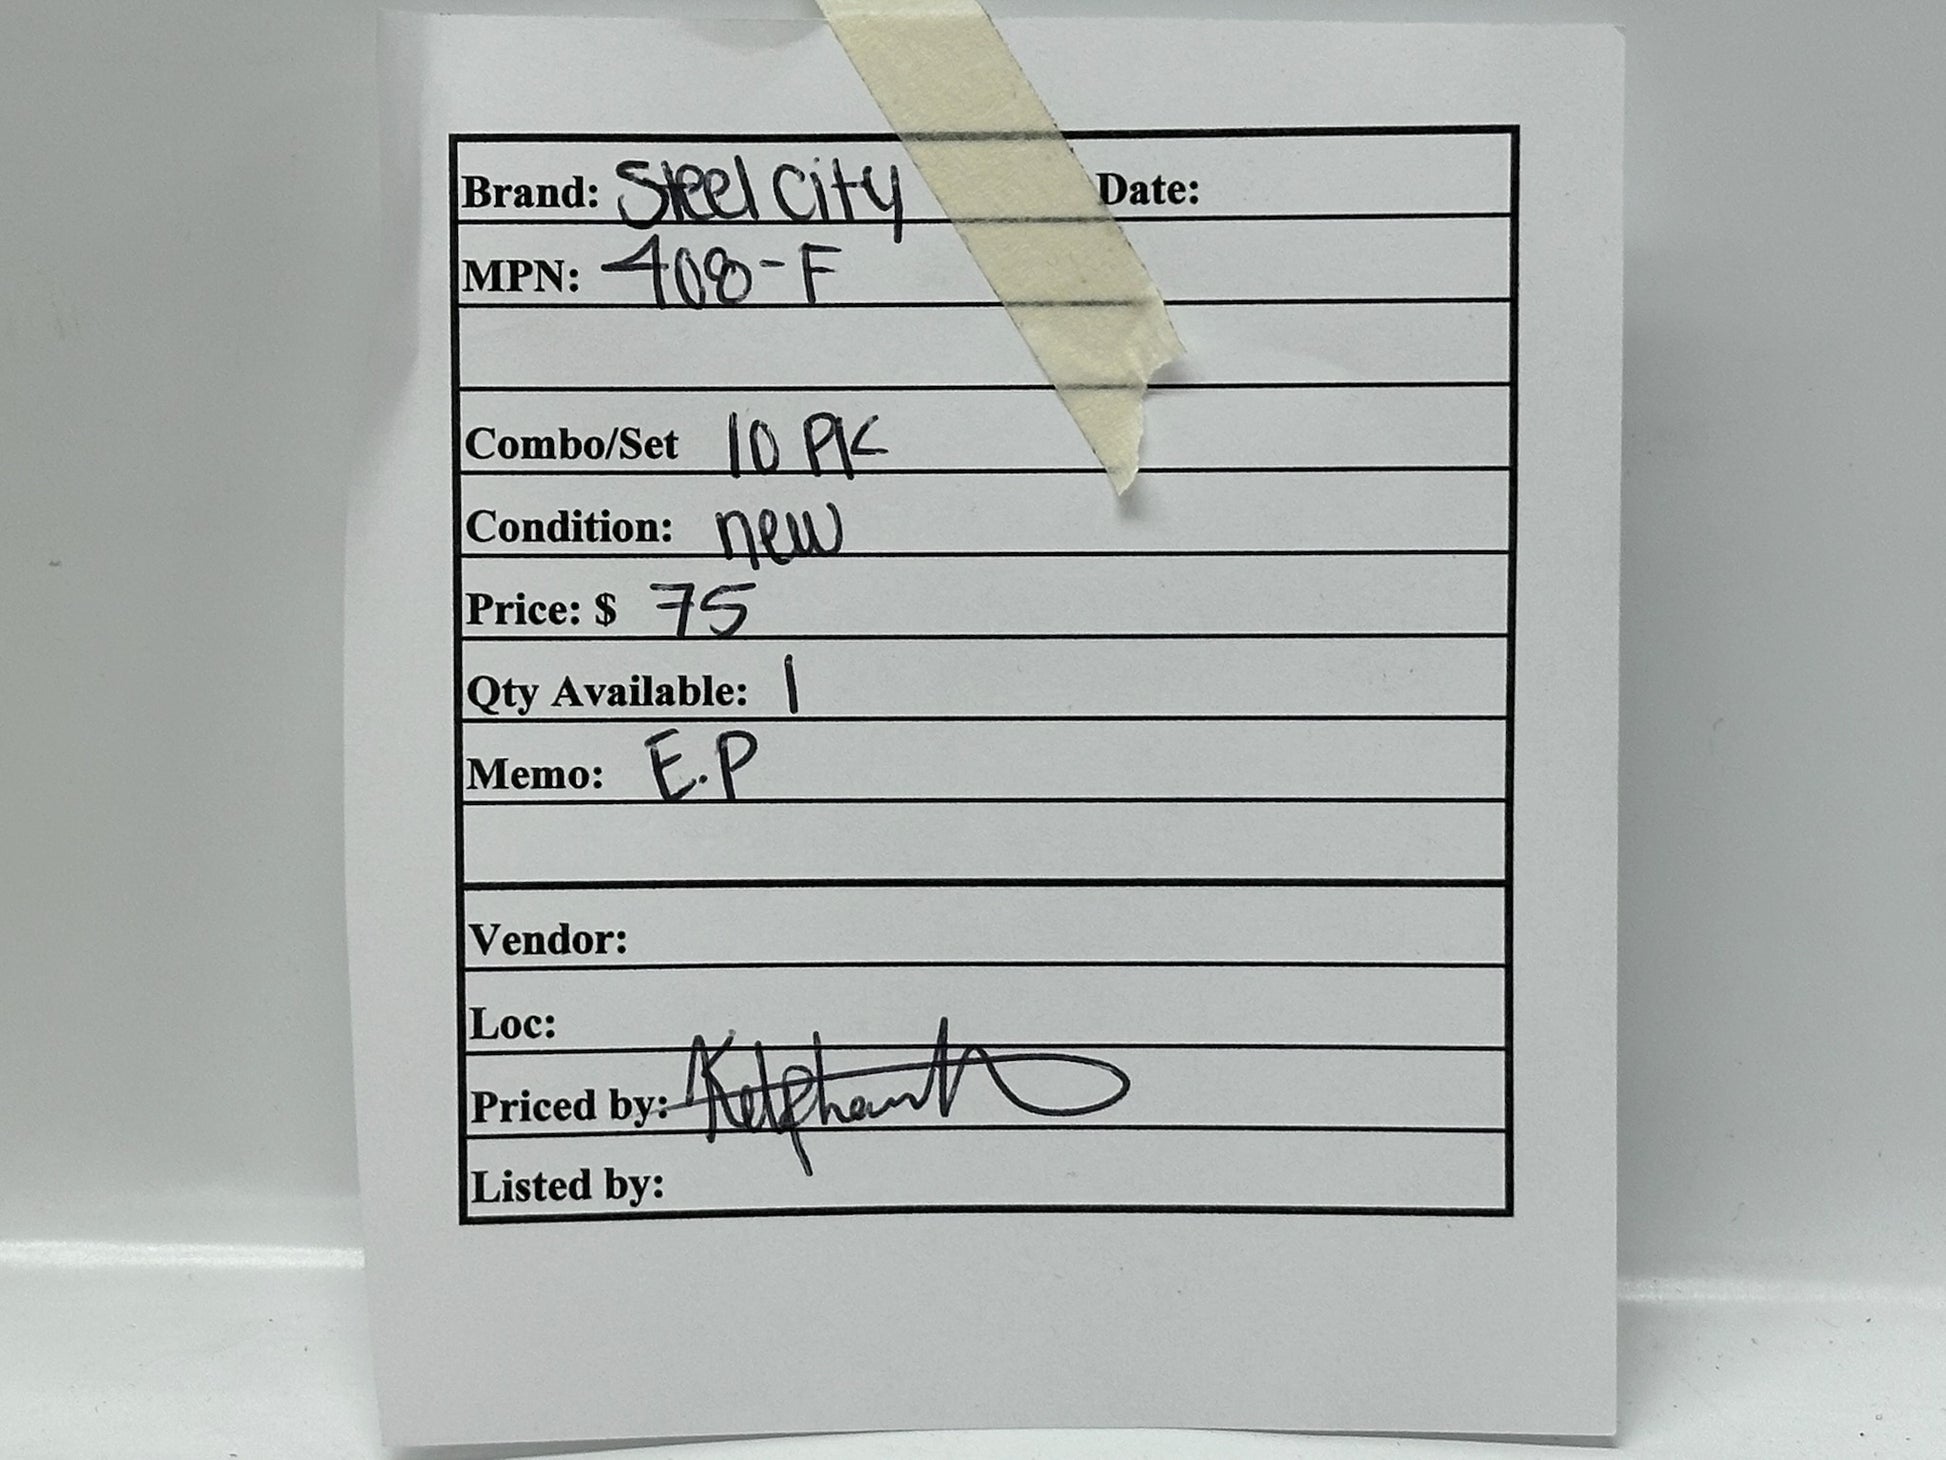 Brand: Steel City Date:
MPN: 408-F
Combo/Set 10 PK
Condition: new
Price: $ 75
Qty Available: 1
Memo: E.P
Vendor:
Loc:
Priced by:
Listed by: